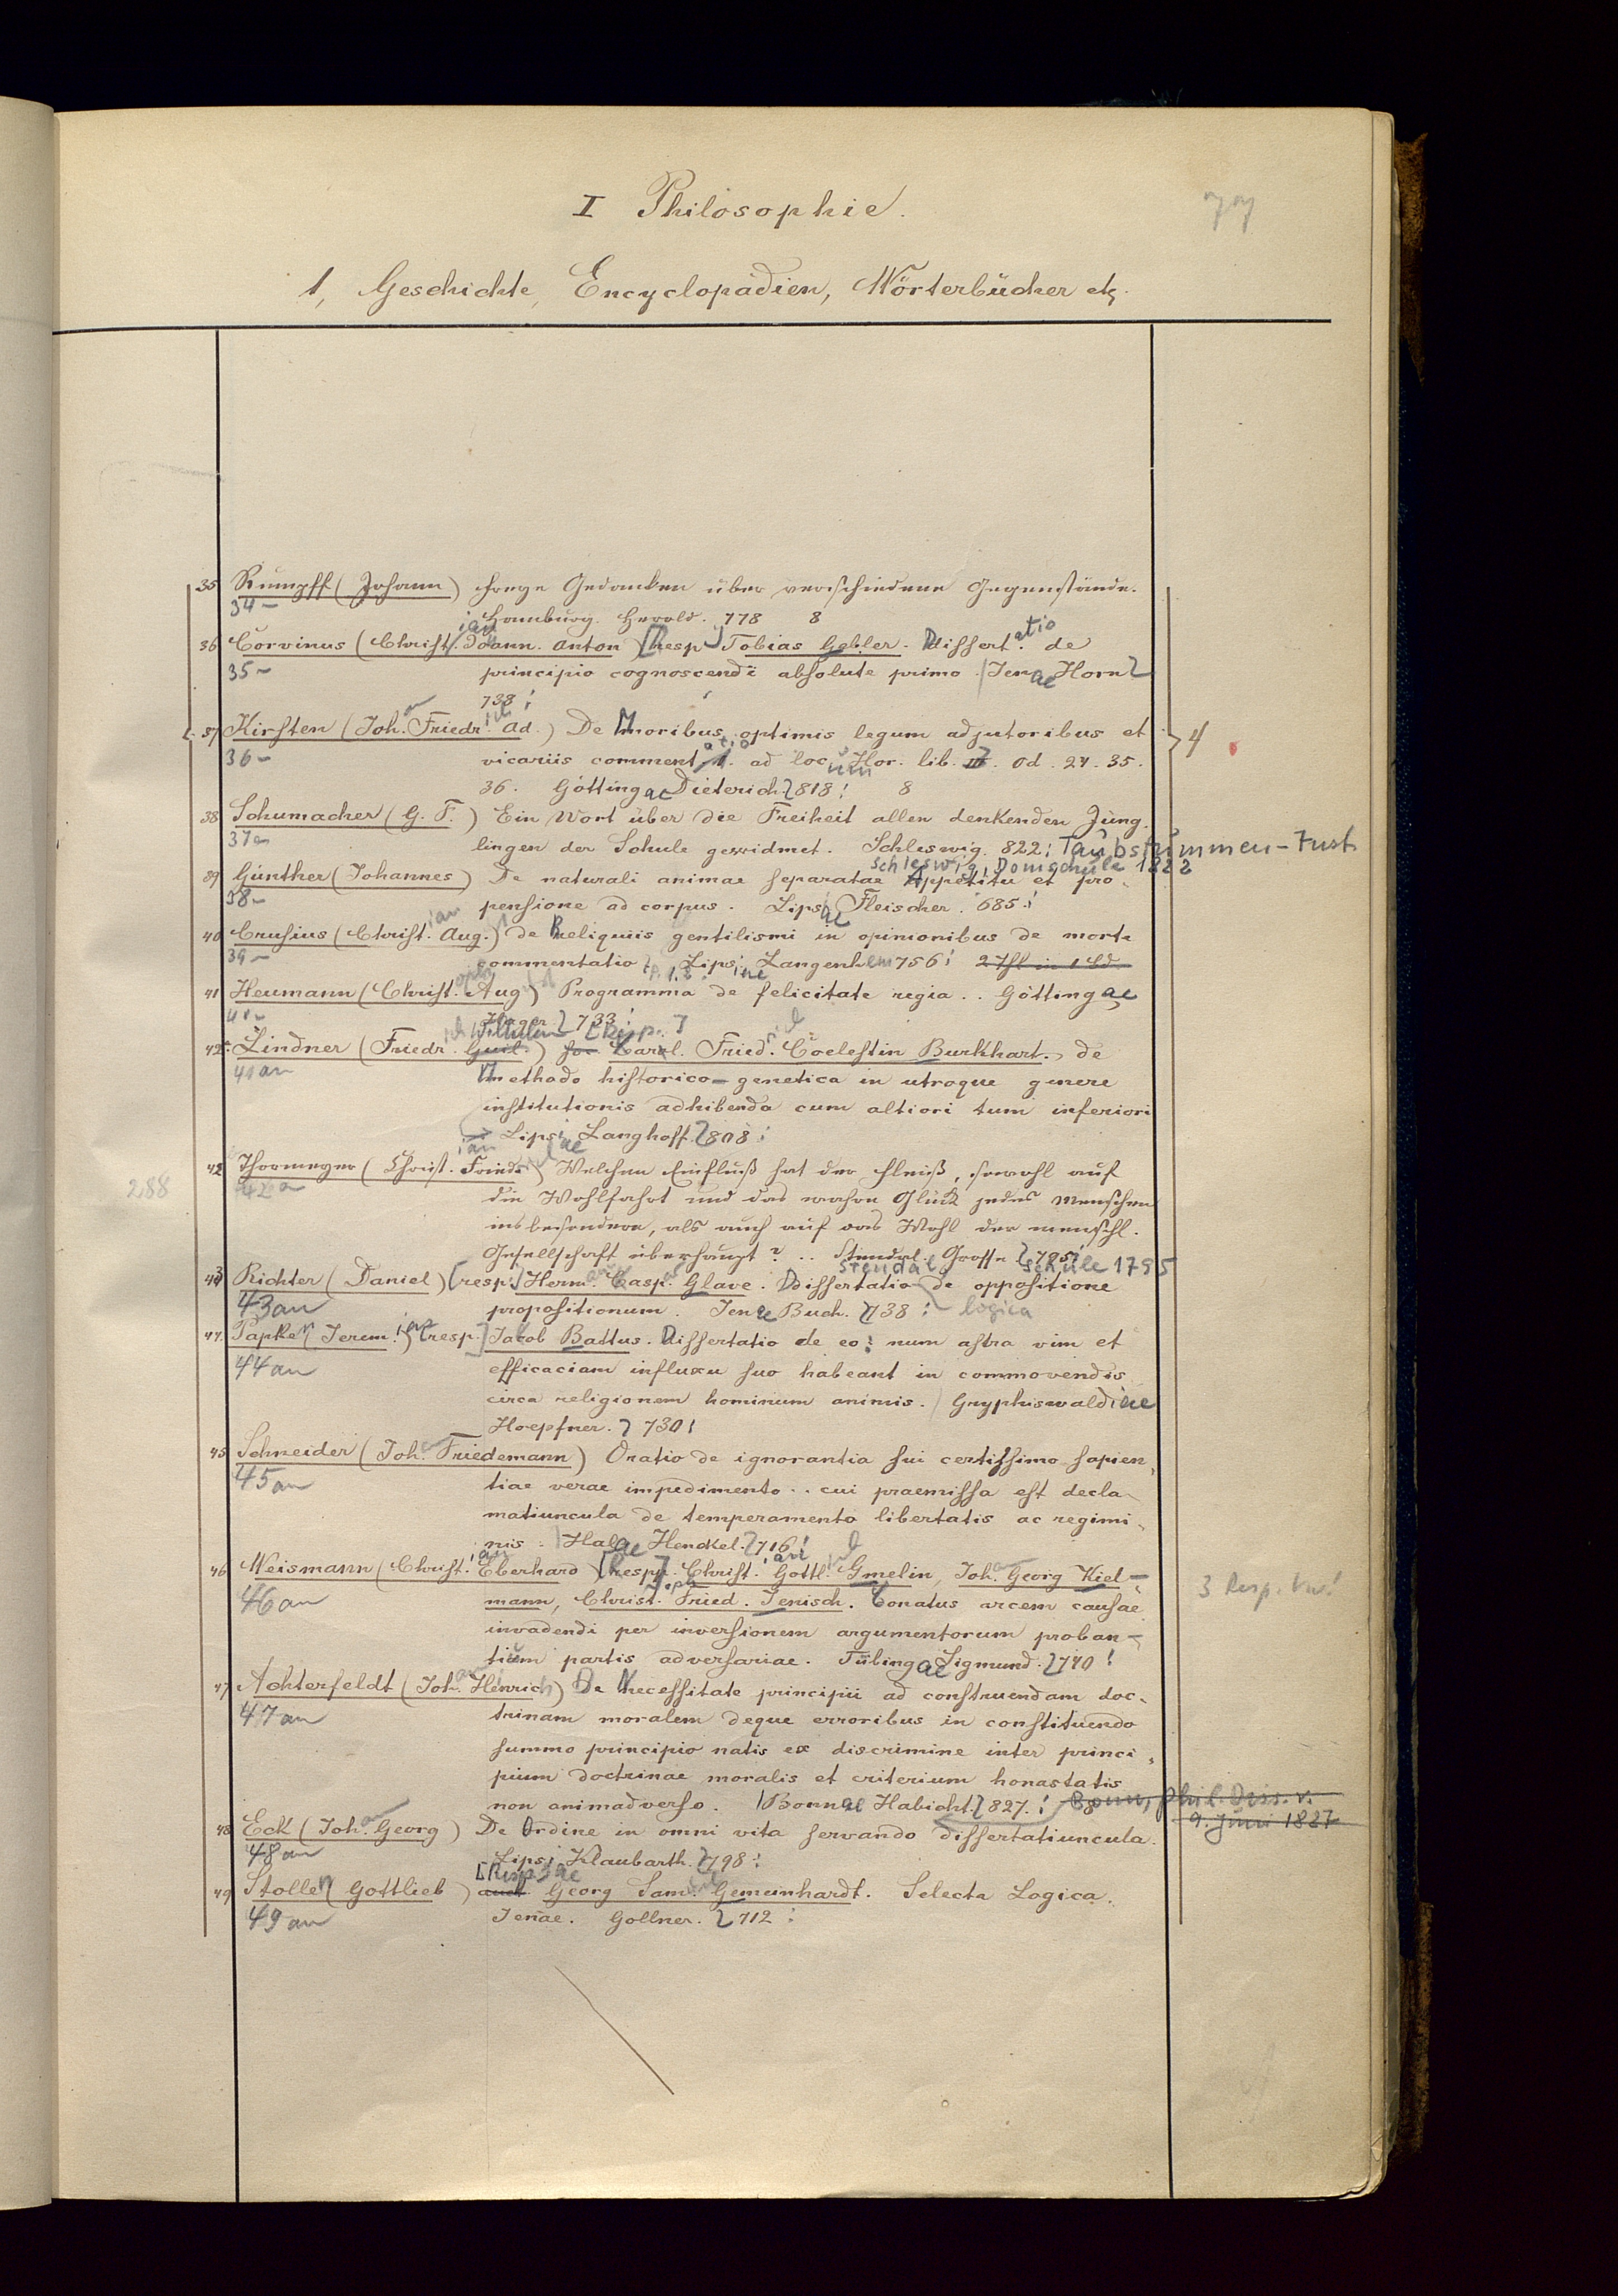 I Philosophie.
77
1, Geschichte, Encyclopädien, Wörterbücher etz.
35 Rumpff (Johann) freye Gedanken über verschiedene Gegenstände.
34
Hamburg. Herold. 778 8
36 Corvinus (Christian Joann. Anton) [Resp.] Tobias Gebler. Dissertatio de
35
principio cognoscendi absolute primo. Jenae Horn
738
37 Kirsten (Joh. Friedr. Ad.) De Moribus optimis legum adjutoribus et
36
vicariis commentatio 1. ad locum Hor. lib. III. Od. 24. 35.
36. Göttingae Dieterich 818 8
4
38 Schumacher (G. F.) Ein Wort über die Freiheit allen denkenden Jüng
37
lingen der Schule gewidmet. Schleswig. 822 Taubstummen-Inst.
Schleswig, Domschule 1822
39 Günther (Johannes) De naturali animae separatae Appetitu et pro-
38
pensione ad corpus. Lipsiae Fleischer. 685
40 Crusius (Christian Aug.) de Reliquiis gentilismi in opinionibus de morte
39
commentatio P. 1.2. Lips. Langenhem 756
41 Heumann (Christoph Aug) Programma de felicitate regia.. Göttingae
Hager 733
42 Lindner (Friedr. Guil.) [Resp.] Carl. Fried. Coelestin Burkhart. de
41 an
Methodo historico-genetica in utroque genere
institutionis adhibenda cum altiori tum inferiori
Lipsiae Langhoff. 808
42 Thormeyer (Christ. Friedr) Welchen Einfluß hat der Fleiß, sowohl auf
288
die Wohlfahrt und das wahre Glück jedes Menschen
insbesondere, als auch auf das Wohl der menschl.
Gesellschaft überhaupt? .. Stendal. Grosse 795
Stendal, Schule 1795
43 Richter (Daniel) [resp.] Herm. Casp. Glave. Dissertatio de oppositione
43 an
propositionum. Jenae Buch. 738 logica
44. Papken Jerem.) [resp.] Jakob Battus. Dissertatio de eo: num astra vim et
44 an
efficaciam influxu suo habeant in commovendis
circa religionem hominum animis. Gryphiswaldiae
Hoepfner. 730
45 Schneider (Joh. Friedemann) Oratio de ignorantia sui certissimo sapien
45 an
tiae verae impedimento.. cui praemissa est decla
matiuncula de temperamento libertatis ac regimi-
nis. Halae Henckel. 716
46 Weismann (Christian Eberhard) [Resp.] Christian Gottl. Gmelin, Joh. Georg Kiel-
46 an
3 Resp.
mann, Christoph Fried. Jenisch. Conatus arcem causae
invadendi per inversionem argumentorum proban-
tium partis adversariae. Tübingae Sigmund. 740
47 Achterfeldt (Joh. Heinrich) De Necessitate principii ad construendam doc-
47 an
trinam moralem deque erroribus in constituendo
summo principio natis ex discrimine inter princi-
pium doctrinae moralis et criterium honastatis
non animadverso. Bonnae Habicht. 827. 8 Bonn, phil. Diss. v.
9. Juni 1827
48 Eck (Joh. Georg) De Ordine in omni vita servando dissertatiuncula.
48 an
Lipsiae Klaubarth. 798
49 Stolle Gottlieb) [Resp.] Georg Sam. Gemeinhardt. Selecta Logica.
49 an
Jenae. Gollner. 712